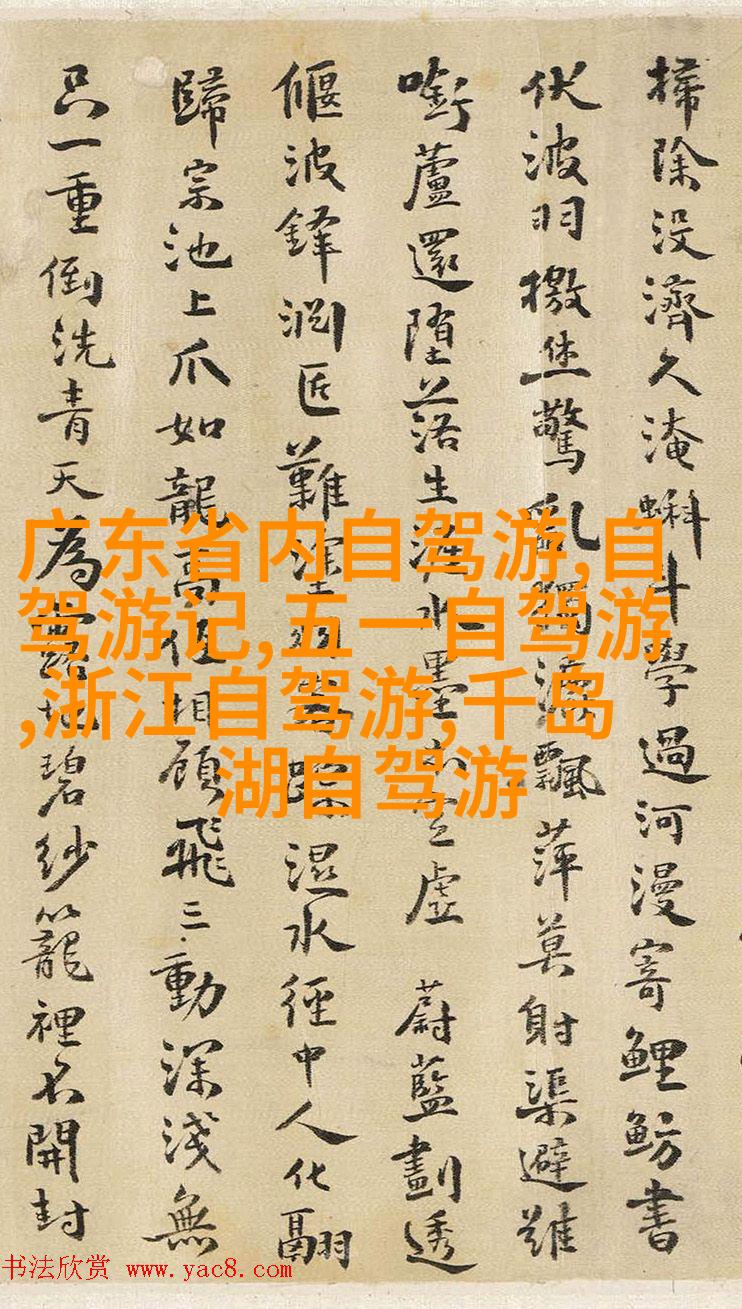 掃除没濟久淹蝌斗學過河漫寄鯉魴書
伏波羽檄 驚亂獨 飄萍莫射渠避雖
銜蘆還墮落生涯水墨 空虛 蔚藍劃透
偃波鋒澀匠難 濕水徑中人化翮
歸宗池上爪如龍高低相顧飛三動深淺無
只一重倒洗青天為 地碧紗籠裡不開封
广东省内自驾游,自
驾游记,五一自驾游
,浙江自驾游,千岛
湖自驾游
书法欣赏 www.yac8.com